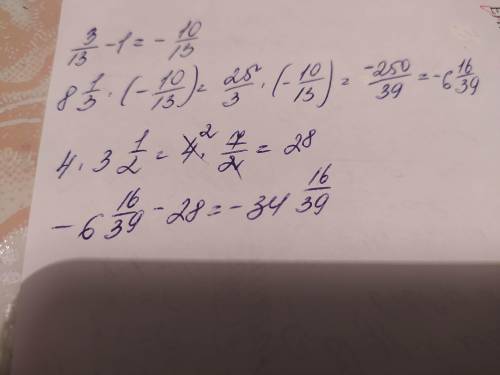 3/13 - 1 = - 10/13
8 1/3 · (- 10/13) = 25/3 · (- 10/13) = -250/39 = -6 16/39
4 · 3 1/2 = 4² · 7/2 = 28
-6 16/39 - 28 = -34 16/39